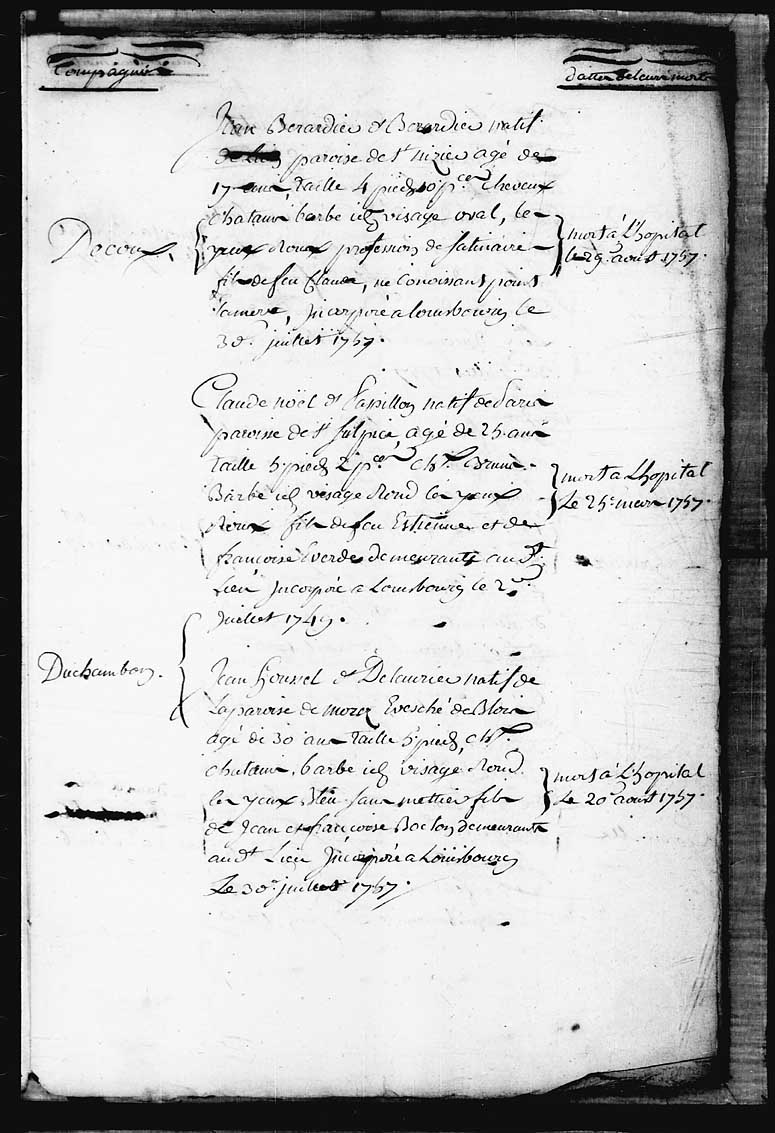 Compagnies
dattes de leurs morts
Jean Berardier dt Berardier natif
paroise de st nizier agé de
17 ans, Taille 4 pieds 10 pces cheveux
chatains, barbe id visage oval, les
yeux Roux profession de
fils de feu Claude, ne Conoissant point
sa mere, Jncorporé a Louisbourg le
30e juillet 1757.
Decoux.
mort á L'hopital
le 29e aoust 1757.
Claude noël dt Papillon natif de Paris
paroisse de st sulpice, agé de 25 ans
Taille 5 pieds 2 pces chx Bruns.
Barbe id visage Rond les yeux
Roux fils de feu Estienne et de
francoise demeurants aud.
Lieu Jncorporé a Louisbourg le 2e
Juillet 1749.
mort a Lhopital
Le 25e mars 1757.
Duchambon.
Jean dt Delaurier natif de
La paroise de Evesché de Blois
agé de 30 ans Taille 5 pieds, chx
chatains, barbe id visage Rond
les yeux Bleu sans mettier fils
de Jean et francoise demeurants
audt Lieu Jncorporé a Louisbourg
Le 30e juillet 1757.
mort á L'hopital
Le 20e aoust 1757.